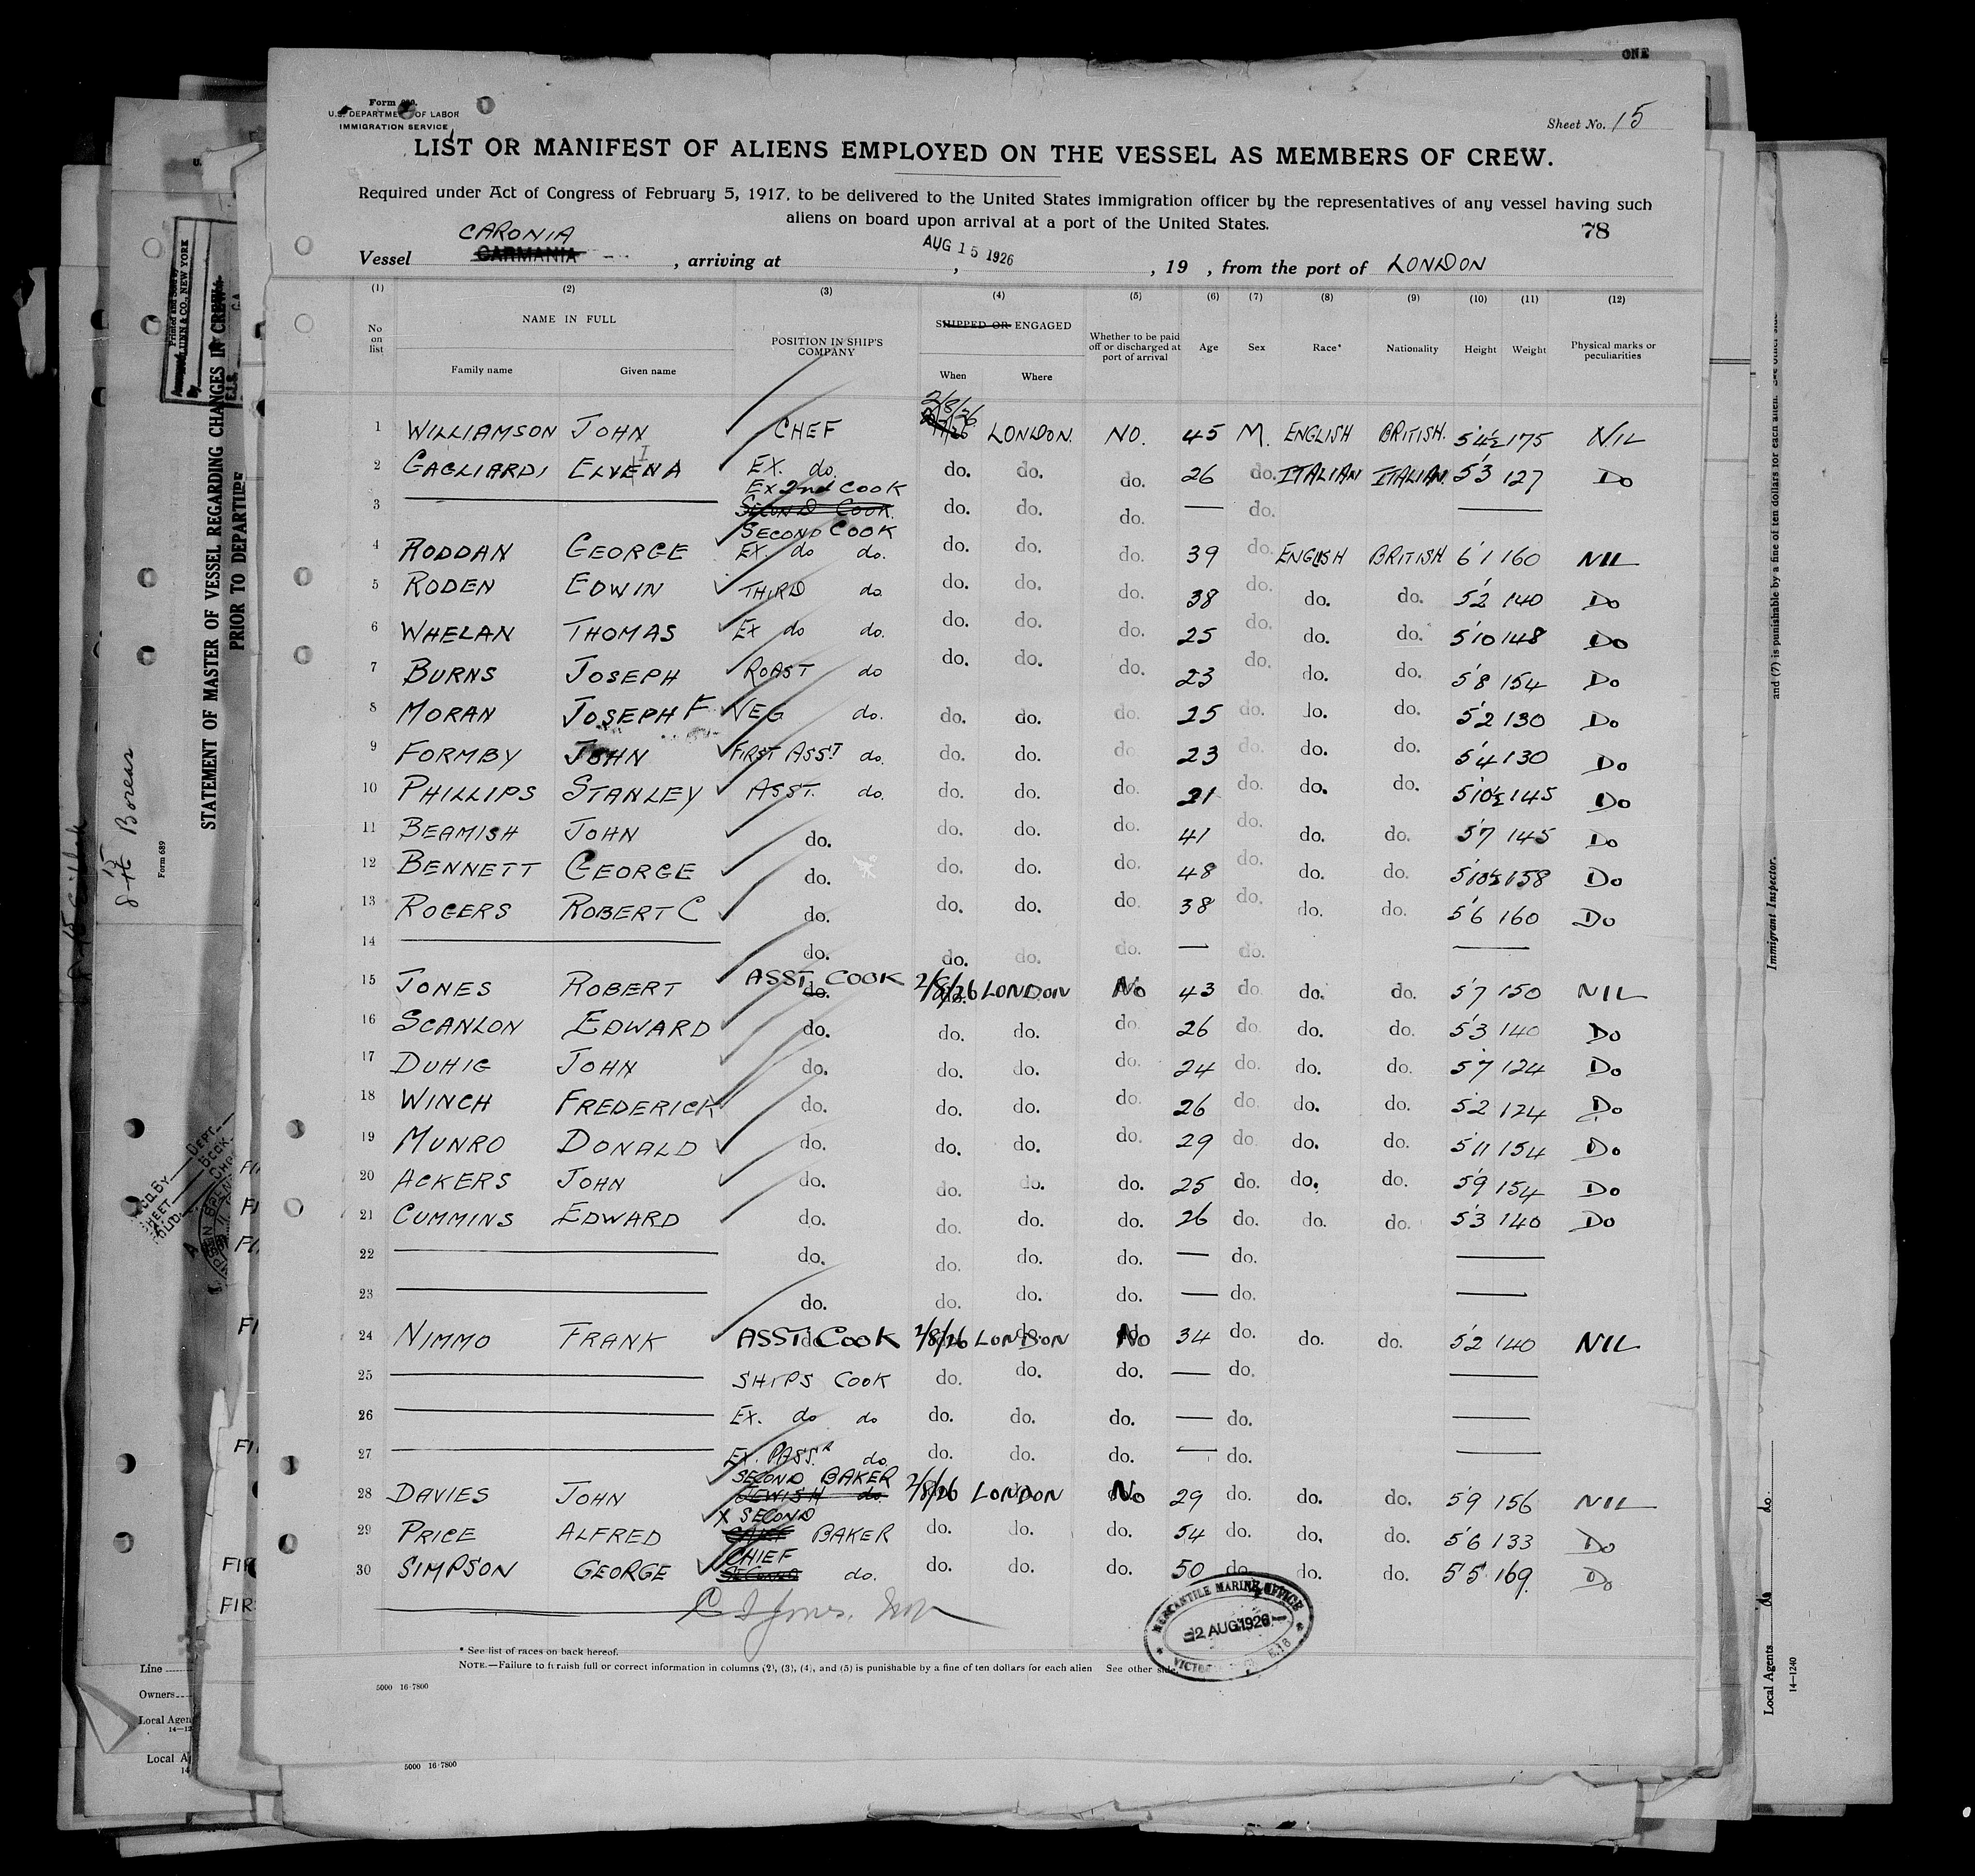 ONE
Form 680.
U.S. DEPARTMENT OF LABOR
IMMIGRATION SERVICE
Sheet No. 15
LIST OR MANIFEST OF ALIENS EMPLOYED ON THE VESSEL AS MEMBERS OF CREW.
Required under Act of Congress of February 5, 1917, to be delivered to the United States immigration officer by the representatives of any vessel having such
aliens on board upon arrival at a port of the United States.
78
CARONIA
Vessel CARMANIA , arriving at AUG 15 1926 , , 19 , from the port of LONDON
(1) (2) (3) (4) (5) (6) (7) (8) (9) (10) (11) (12)
No on list NAME IN FULL Family name Given name POSITION IN SHIP'S COMPANY SHIPPED OR ENGAGED When Where Whether to be paid off or discharged at port of arrival Age Sex Race* Nationality Height Weight Physical marks or peculiarities
2/8/26
1 WILLIAMSON JOHN CHEF LONDON. NO. 45 M. ENGLISH BRITISH. 5'4½ 175 NIL
2 GAGLIARDI ELVENA I EX. do. do. do. do. 26 do. ITALIAN ITALIAN. 5'3 127 Do
EX 2nd COOK
3 SECOND COOK. do. do. do. — do.
SECOND COOK
4 RODDAN GEORGE EX do do. do. do. do. 39 do. ENGLISH BRITISH 6'1 160 NIL
5 RODEN EDWIN THIRD do. do. do. do. 38 do. do. do. 5'2 140 Do
6 WHELAN THOMAS EX do do. do. do. do. 25 do. do. do. 5'10 148 Do
7 BURNS JOSEPH ROAST do do. do. do. 23 do. do. do. 5'8 154 Do
8 MORAN JOSEPH F. VEG do. do. do. do. 25 do. do. do. 5'2 130 Do
9 FORMBY JOHN FIRST ASST do. do. do. do. 23 do. do. do. 5'4 130 Do
10 PHILLIPS STANLEY ASST. do. do. do. do. 21 do. do. do. 5'10½ 145 Do
11 BEAMISH JOHN do. do. do. do. 41 do. do. do. 5'7 145 Do
12 BENNETT GEORGE do. do. do. do. 48 do. do. do. 5'10½ 158 Do
13 ROGERS ROBERT C do. do. do. do. 38 do. do. do. 5'6 160 Do
14 do. do. do. do. — do.
15 JONES ROBERT ASST COOK 2/8/26 LONDON No 43 do. do. do. 5'7 150 NIL
16 SCANLON EDWARD do. do. do. do. 26 do. do. do. 5'3 140 Do
17 DUHIG JOHN do. do. do. do. 24 do. do. do. 5'7 124 Do
18 WINCH FREDERICK do. do. do. do. 26 do. do. do. 5'2 124 Do
19 MUNRO DONALD do. do. do. do. 29 do. do. do. 5'11 154 Do
20 ACKERS JOHN do. do. do. do. 25 do. do. do. 5'9 154 Do
21 CUMMINS EDWARD do. do. do. do. 26 do. do. do. 5'3 140 Do
22 do. do. do. do. — do.
23 do. do. do. do. — do.
24 NIMMO FRANK ASST COOK 2/8/26 LONDON No 34 do. do. do. 5'2 140 NIL
25 SHIPS COOK do. do. do. — do.
26 EX. do do do. do. do. — do.
27 EX. PASSR do. do. do. do. — do.
SECOND BAKER
28 DAVIES JOHN JEWISH do. 2/8/26 LONDON No 29 do. do. do. 5'9 156 NIL
X SECOND
29 PRICE ALFRED BAKER do. do. do. 54 do. do. do. 5'6 133 Do
CHIEF
30 SIMPSON GEORGE SECOND do. do. do. do. 50 do. do. do. 5'5 169. Do
MERCANTILE MARINE OFFICE
2 AUG 1926
* See list of races on back hereof.
NOTE.—Failure to furnish full or correct information in columns (2), (3), (4), and (5) is punishable by a fine of ten dollars for each alien See other side.
5000 16-7800
5000 16-7800
STATEMENT OF MASTER OF VESSEL REGARDING CHANGES IN CREW
PRIOR TO DEPARTURE
Form 689
Boreas
Line
Owners
Local Agen
Local A
and (7) is punishable by a fine of ten dollars for each alien. See other side
Immigrant Inspector.
Local Agents do do.
14—1240